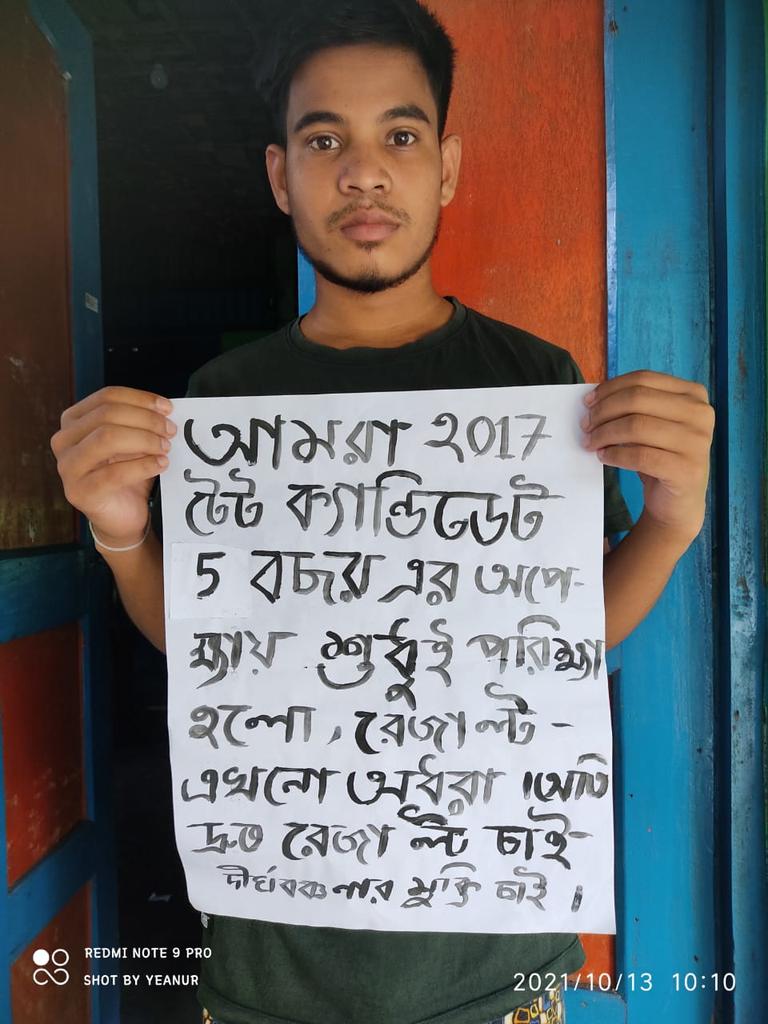 আমরা ২017
টেট ক্যান্ডিডেট
5 বছর এর অপে-
ক্ষায় শুধুই পরিক্ষা
হলো, রেজাল্ট-
এখনো অধরা । অতি
দ্রুত রেজাল্ট চাই-
দীর্ঘ বঞ্চনার মুক্তি চাই ।
REDMI NOTE 9 PRO
SHOT BY YEANUR
2021/10/13 10:10